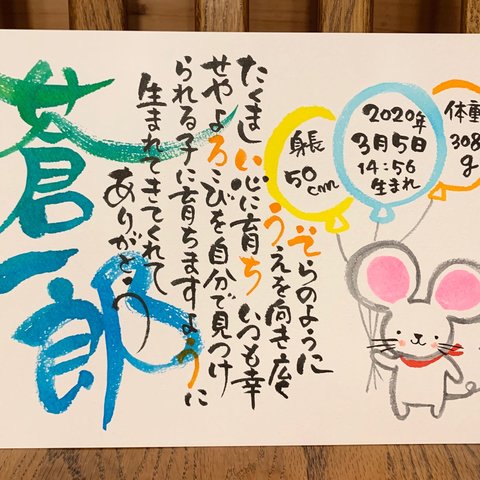 体重
308
g
2020年
3月5日
14:56
生まれ
身長
50cm
そらのように
うえを向き広く
たくましい心に育ちいつも幸
せやよろこびを自分で見つけ
られる子に育ちますように
生まれてきてくれて
ありがとう
蒼一郎